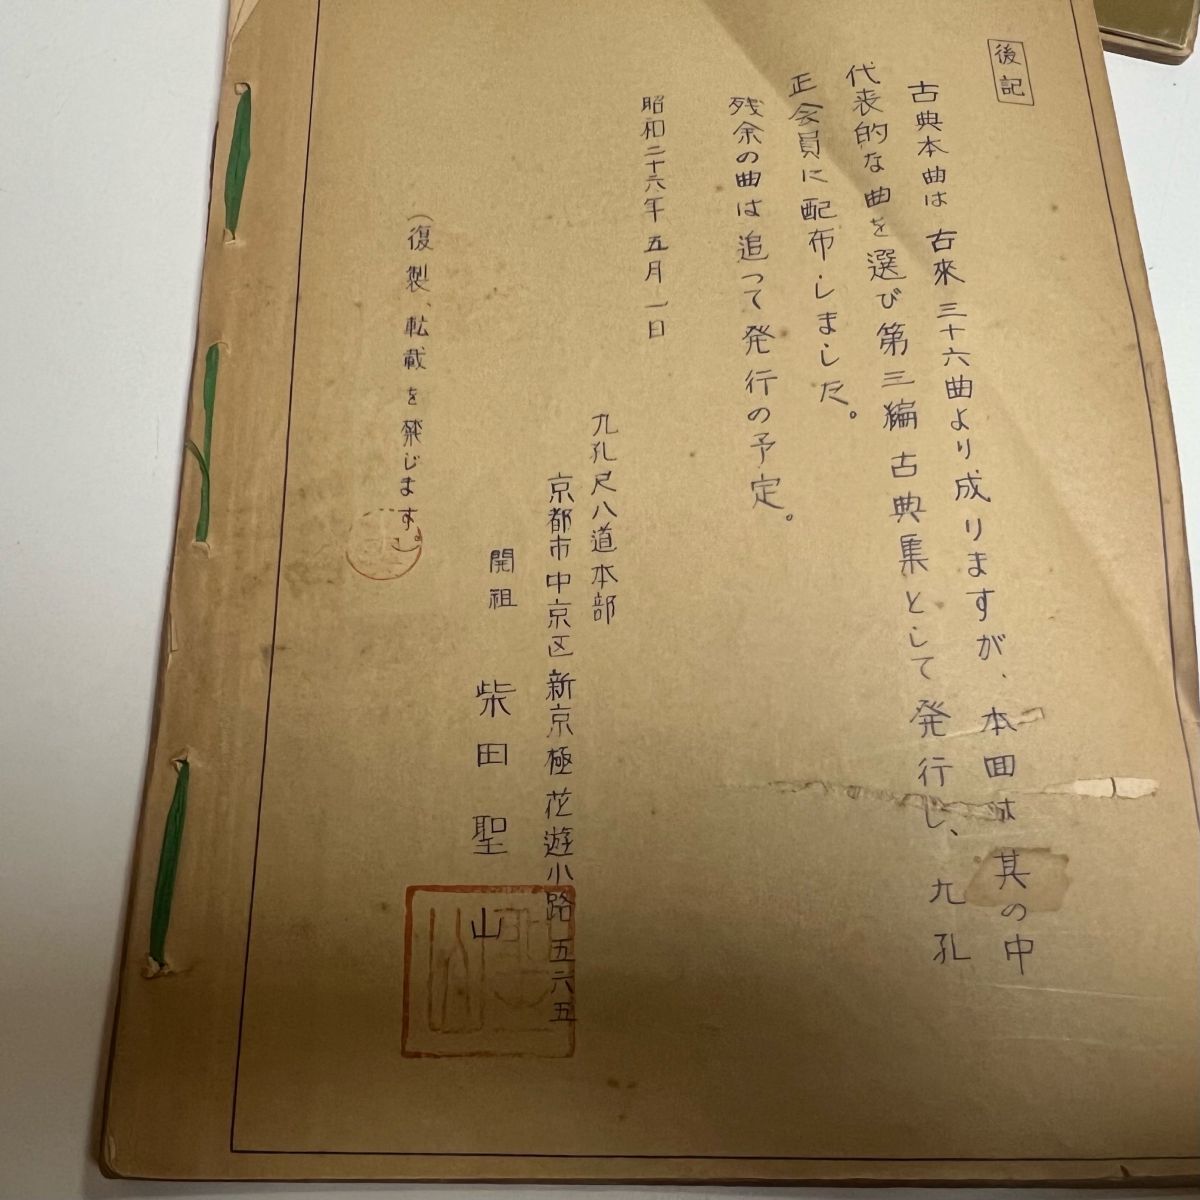 後記
古典本曲は古來三十六曲より成りますが、本回は其の中
代表的な曲を選び第三編古典集として発行し、九孔
正会員に配布しました。
残余の曲は追って発行の予定。
昭和二十六年五月一日
九孔尺八道本部
京都市中京区新京極花遊小路五六五
開祖 柴田聖山
(復製、転載を禁じます。)
聖山